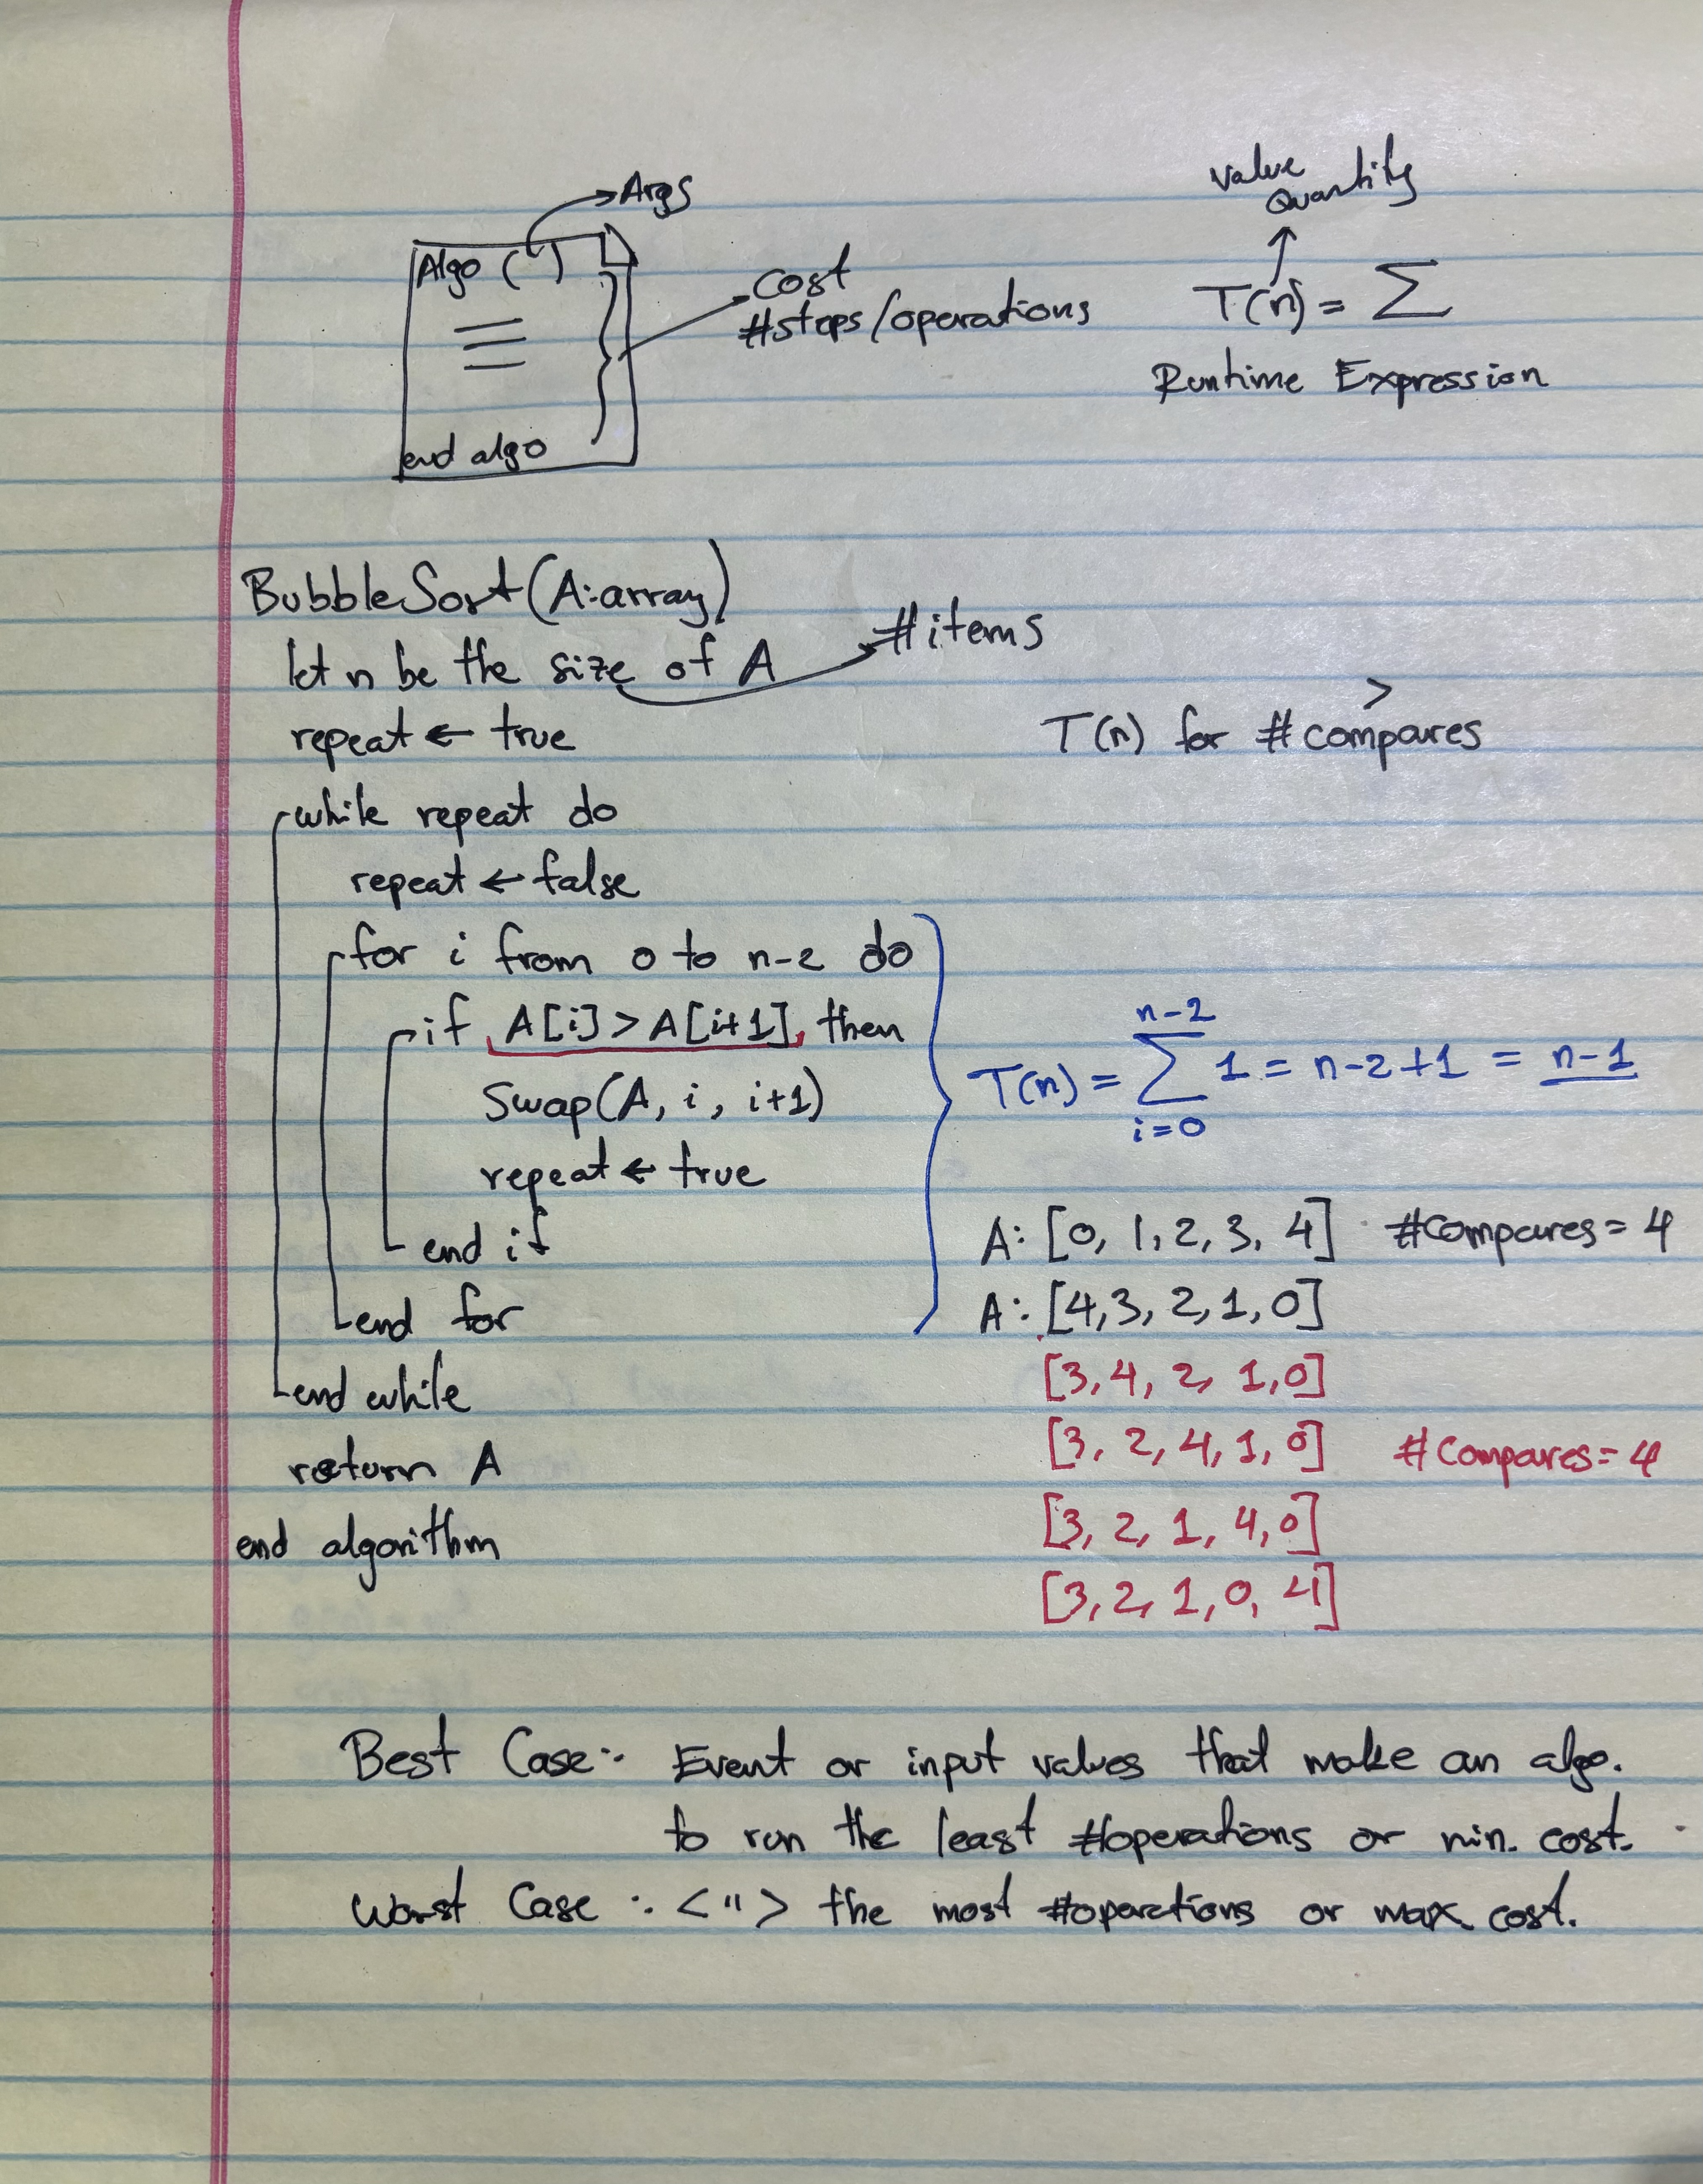 Args
Algo ( )
end algo
Cost
#steps/operations
Value
Quantity
T(n) = Σ
Runtime Expression
BubbleSort(A:array)
let n be the size of A
#items
repeat ← true
>
T(n) for #compares
while repeat do
repeat ← false
for i from 0 to n-2 do
if A[i] > A[i+1], then
Swap(A, i, i+1)
repeat ← true
end if
end for
end while
return A
end algorithm
n-2
T(n) = Σ 1 = n-2+1 = n-1
i=0
A: [0, 1, 2, 3, 4] #Compares = 4
A: [4,3, 2, 1, 0]
[3, 4, 2, 1, 0]
[3, 2, 4, 1, 0] #Compares = 4
[3, 2, 1, 4, 0]
[3, 2, 1, 0, 4]
Best Case: Event or input values that make an algo.
to run the least #operations or min. cost.
Worst Case : < " > the most #operations or max cost.